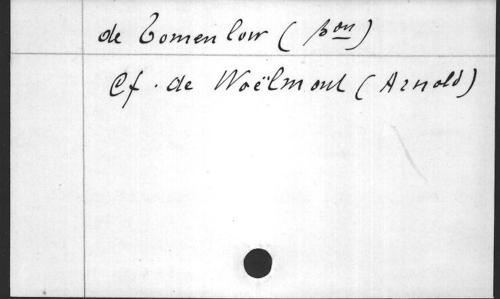 de Tomenlow (Bon)
Cf. de Woëlmont (Arnold)